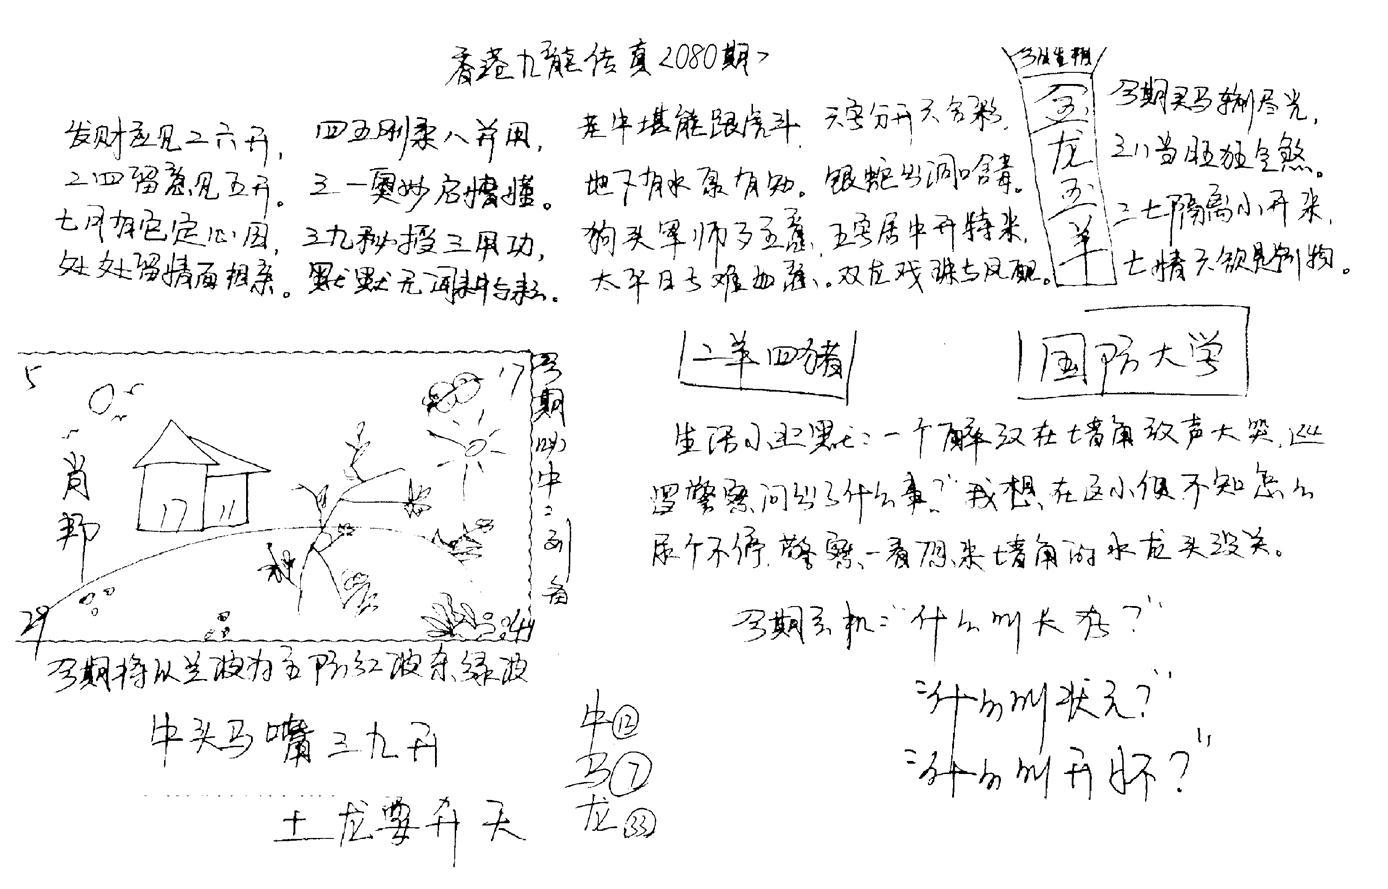 香港九龍传真2080期
发财应见二六开，
二四留意见五开。
七网有它定心因，
处处留情面相亲。
四五刚柔八并用，
三一奥妙启情懂。
三九秘授三用功，
默默无闻耕与耘。
老牛堪能跟虎斗
地下有水泵有知。
狗头军师
太平日子难
六字分开天各彩，
银蛇出洞口含毒。
五字居中开特来，
双龙戏珠与凤配。
金龙五羊
今期买马输尽光，
三八当旺狂金煞。
二七隔离小开来，
七情六欲是别物。
二羊四猪
国防大学
5
17
肖
17 11
29
44
今期必中二列
今期将以兰波为主防红波杂绿波
牛头马嘴三九开
土龙要升天
牛⑫
马⑦
龙㉝
生活小幽默：一个醉汉在墙角放声大哭，巡
逻警察问出了什么事？我想，在这小便不知怎么
尿个不停，警察一看，原来墙角的水龙头没关。
今期玄机："什么叫大
"什么叫状元？"
"什么叫开怀？"